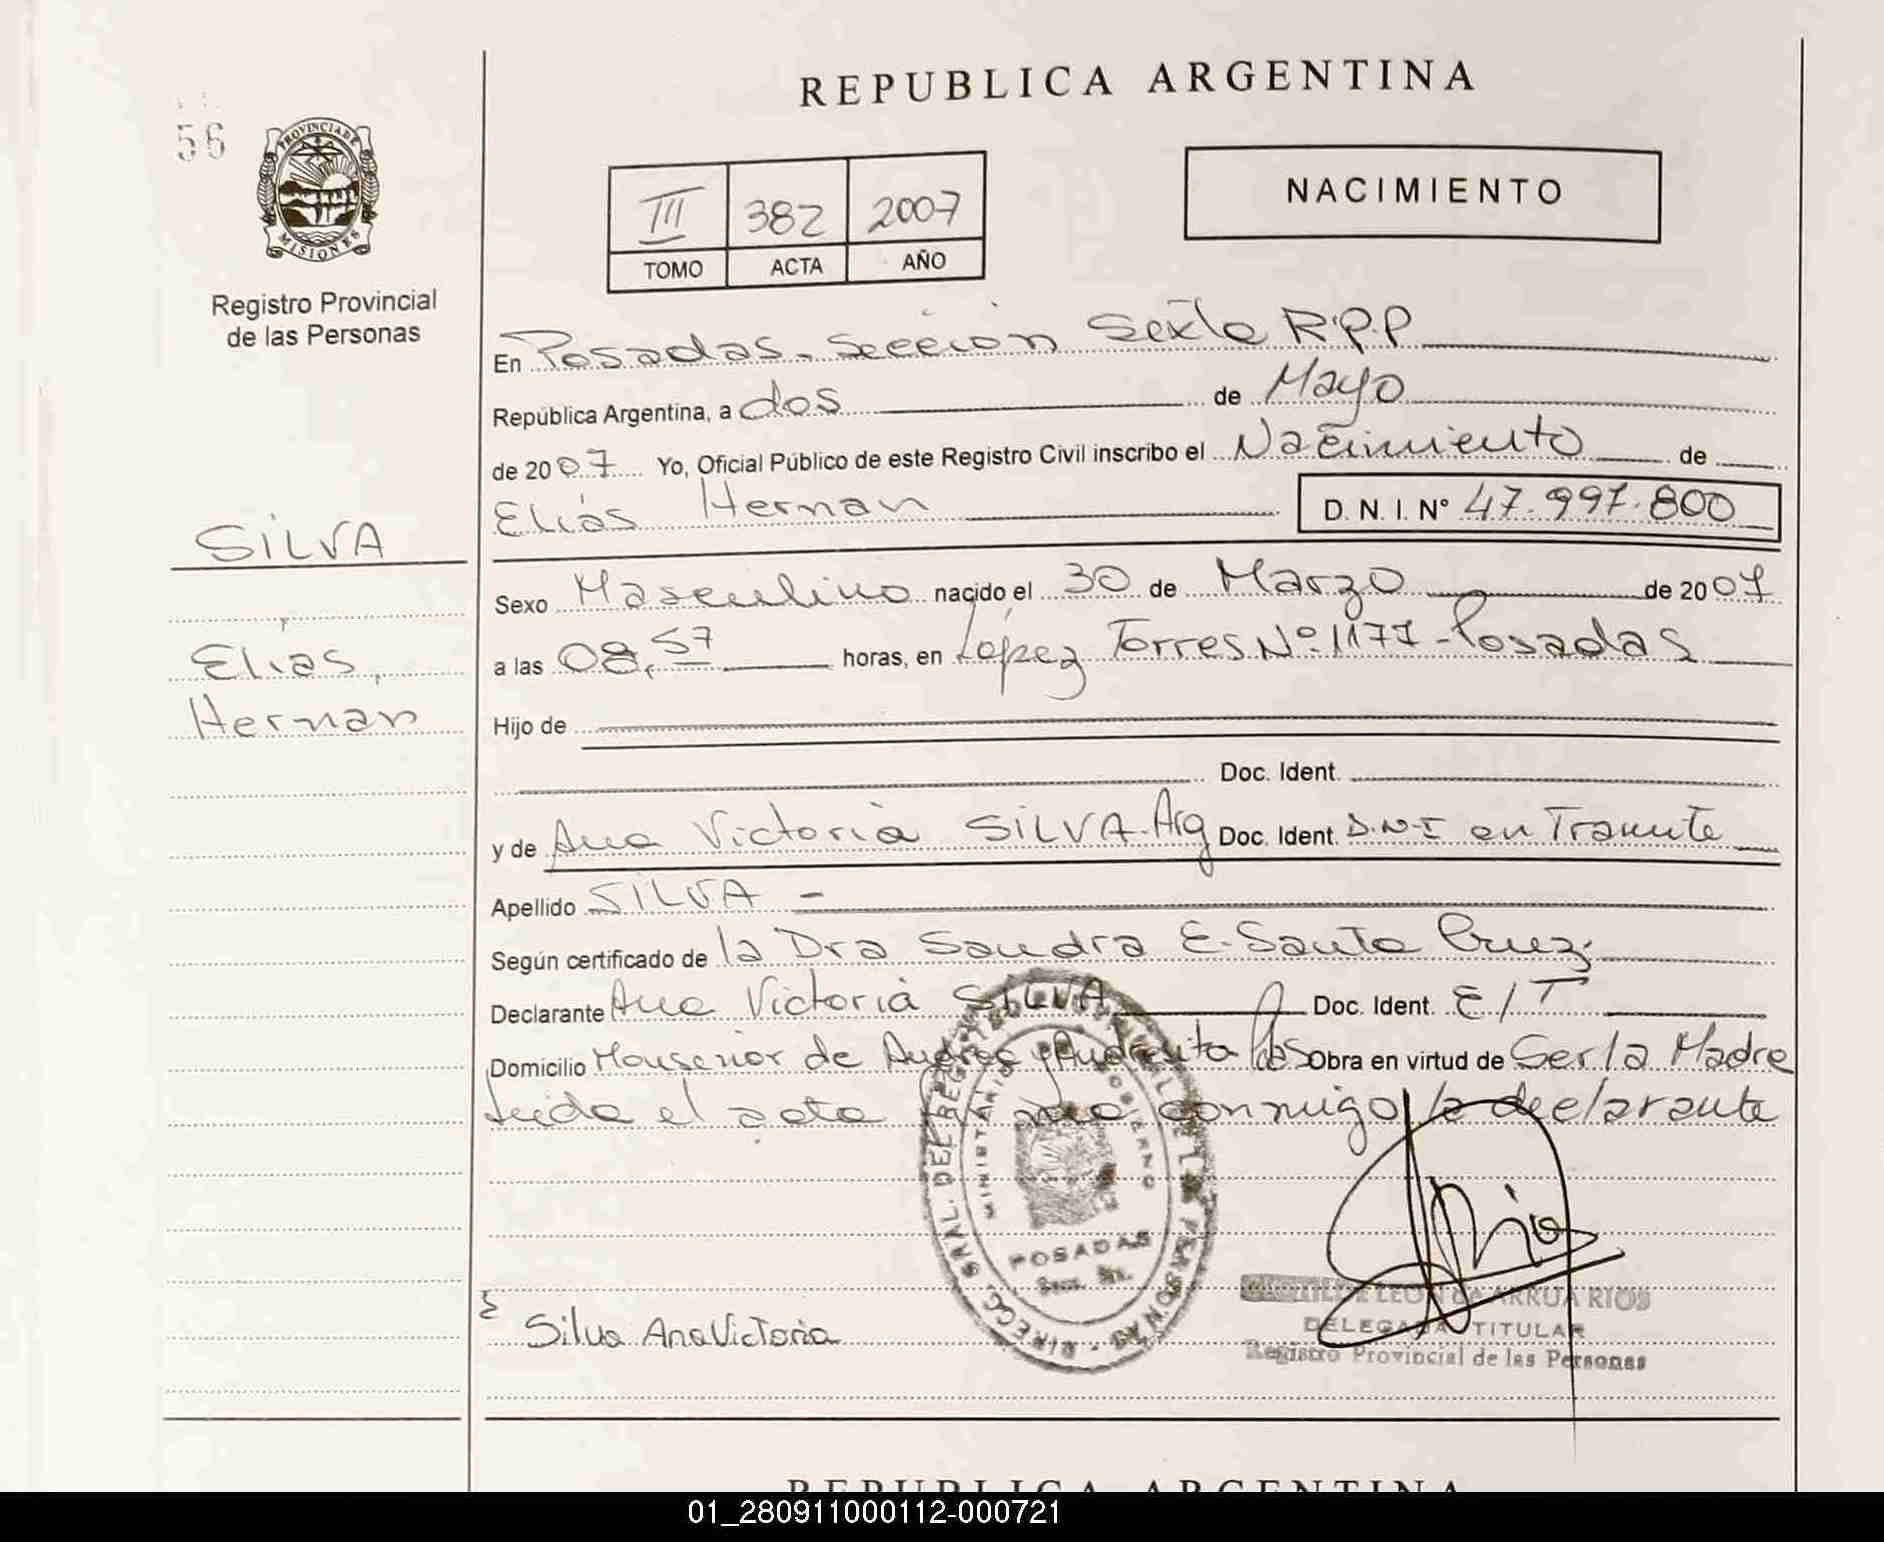 REPUBLICA ARGENTINA
56
PROVINCIA DE
MISIONES
Registro Provincial
de las Personas
III 382 2007
TOMO ACTA AÑO
NACIMIENTO
En Posadas. Sección Sexta R.P.P
República Argentina, a dos de Mayo
de 2007 Yo, Oficial Público de este Registro Civil inscribo el Nacimiento de
Elías Hernan D. N. I. Nº 47.997.800
SILVA
Elías,
Hernan
Sexo Masculino nacido el 30 de Marzo de 2007
a las 08,57 horas, en López Torres Nº 1177 - Posadas
Hijo de
Doc. Ident.
y de Ana Victoria SILVA. Arg Doc. Ident. D.N.I en Tramite
Apellido SILVA -
Según certificado de la Dra Sandra E. Santa Cruz.
Declarante Ana Victoria SILVA Doc. Ident. E/T
Domicilio Monseñor de Andrea y Andresito Pdas Obra en virtud de Ser la Madre
Leida el acta conmigo la declarante
DIRECC. GRAL. DEL REGISTRO PERSONAS
MINISTERIO GOBIERNO
POSADAS
Silva Ana Victoria
LEON de ARRUA RIOS
DELEGADA TITULAR
Registro Provincial de las Personas
REPUBLICA ARGENTINA
01_280911000112-000721